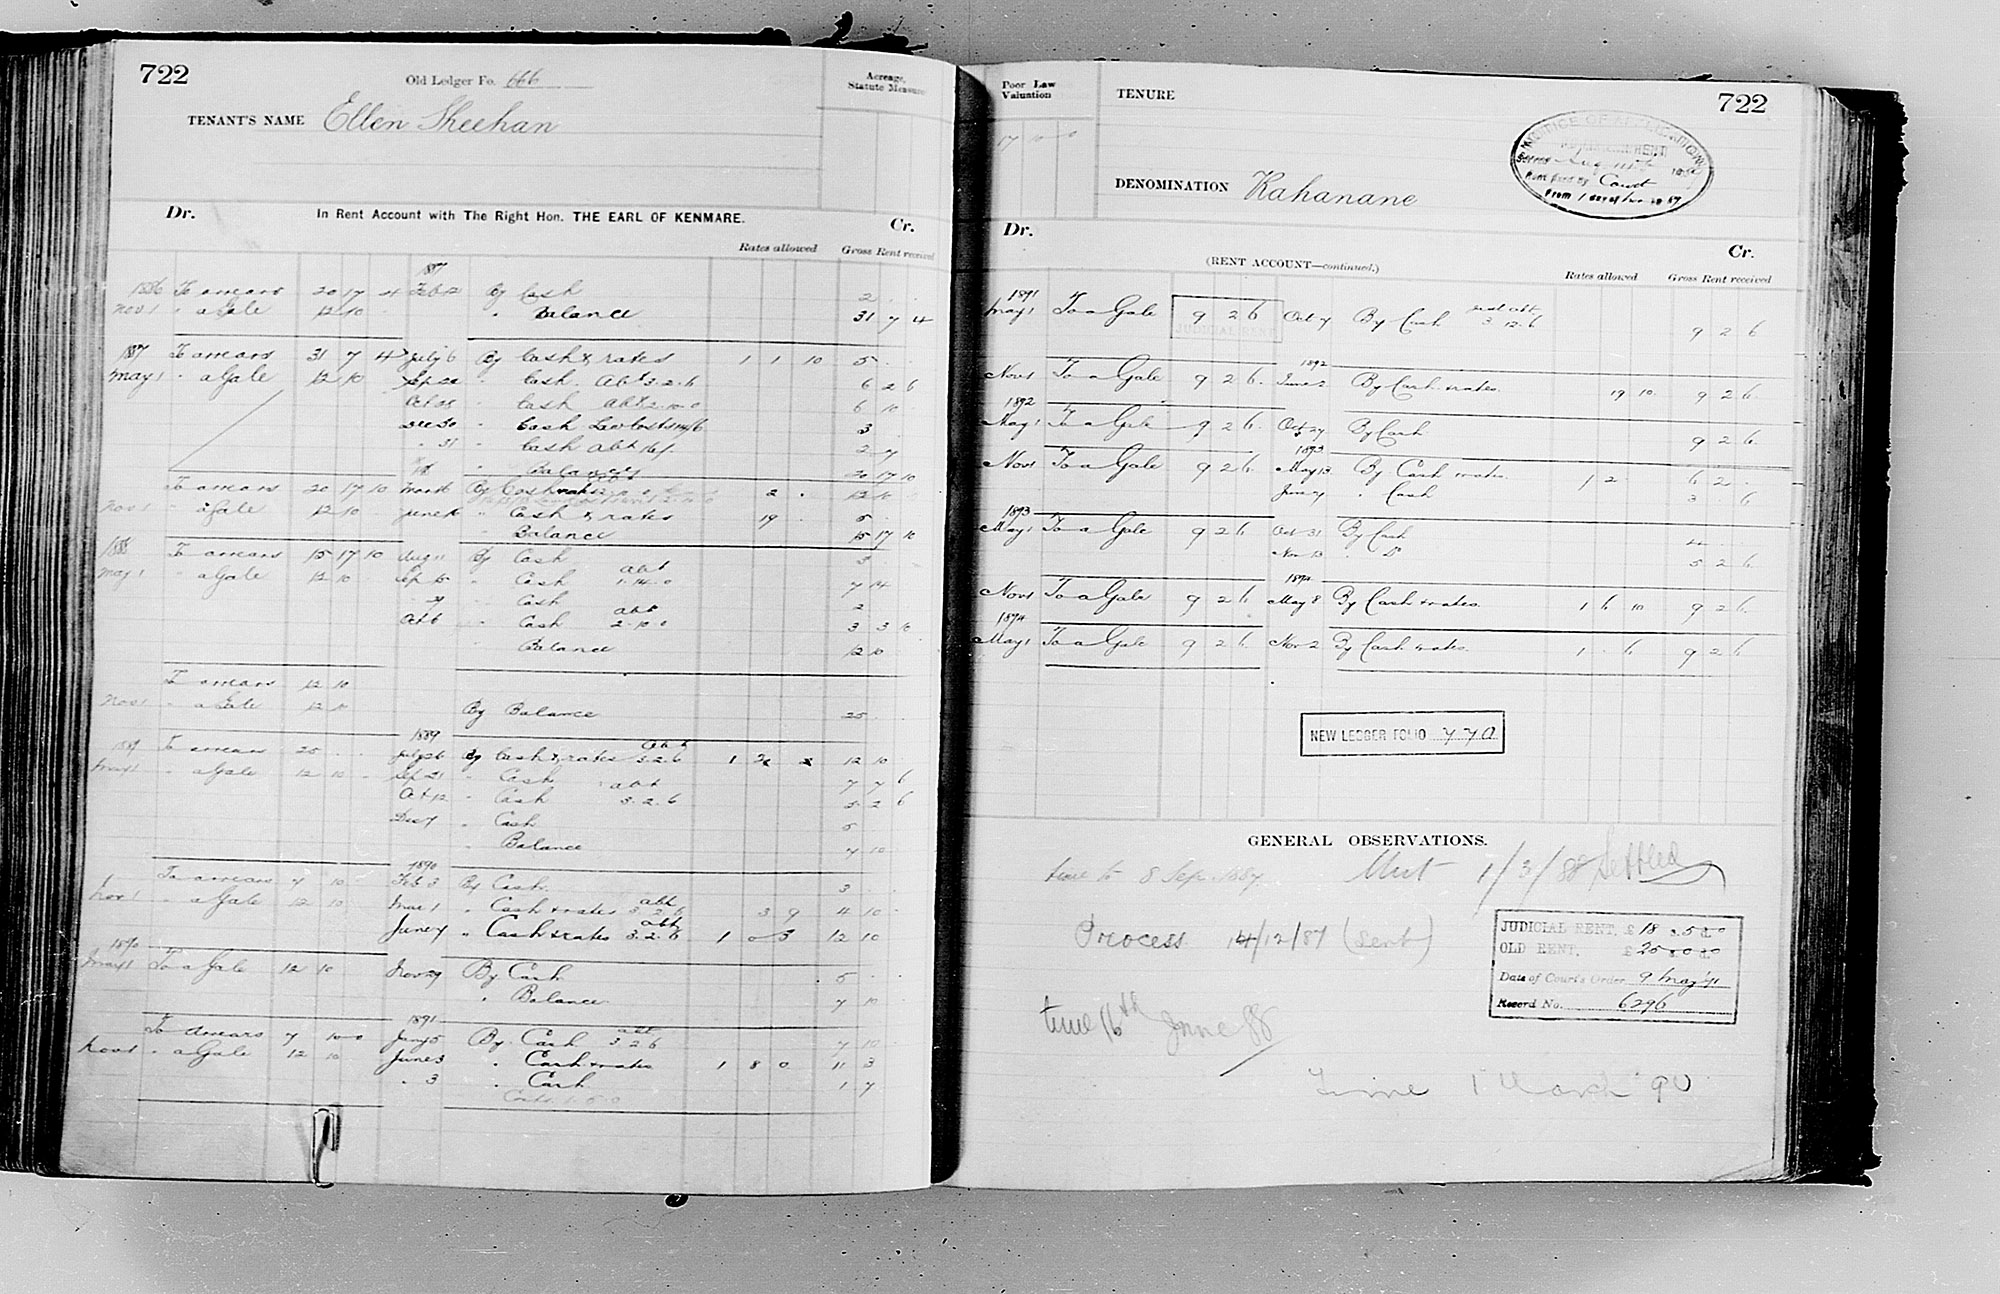 722
Old Ledger Fo. 666
Acreage,
Statute Measure
TENANT'S NAME Ellen Sheehan
Dr. In Rent Account with The Right Hon. THE EARL OF KENMARE. Cr.
Rates allowed Gross Rent received
1887
1886 To arrears 20 17 4 Feb 12 By Cash 2 . .
Nov 1 " a Gale 12 10 " Balance 31 7 4
1887 To arrears 31 7 4 July 6 By Cash & rates 1 1 10 5 . .
May 1 " a Gale 12 10 Sep 22 " Cash Abt 3.2.6 6 2 6
Oct 28 " Cash Abt 2.10.0 6 10
Dec 30 " Cash 3
" 31 " Cash Abt 2 7
" Balance 20 17 10
To arrears 20 17 10 By Cash 2 . 12 10
Nov 1 " a Gale 12 10 June " Cash & rates 19 . 5 .
Balance 15 17 10
1888 To arrears 15 17 10 Aug 11 By Cash 3
May 1 " a Gale 12 10 Sep 15 " Cash abt 1.14.0 7 14
" Cash 2
Oct 6 " Cash abt 2.10.0 3 3 10
" Balance 12 10
To arrears 12 10
Nov 1 " a Gale 12 10 By Balance 25
1889
1889 To arrears 25 . . July 26 By Cash & rates abt 3.2.6 1 12 10
May 1 " a Gale 12 10 . Sep 21 " Cash 7 7 6
Oct 12 " Cash abt 3.2.6 5 2 6
Dec 7 " Cash 5
" Balance 7 10
1890
To arrears 7 10 Feb 3 By Cash 3 . .
Nov 1 " a Gale 12 10 Mar 1 " Cash & rates abt 3.2.6 3 9 4 10
June 7 " Cash & rates abt 3.2.6 1 0 5 12 10
1890
May 1 To a Gale 12 10 Nov 29 By Cash 5 . .
" Balance 7 10
1891
To Arrears 7 10 0 Jany 5 By Cash abt 3 2 6 7 10
Nov 1 " a Gale 12 10 June 3 " Cash & rates 1 8 0 11 3
" 3 " Cash 1 7
Costs 1.5.0
Poor Law
Valuation
17 10 0
TENURE
722
NOTICE OF APPLICATION
Court
DENOMINATION Kahanane
Dr. Cr.
(RENT ACCOUNT—continued.)
Rates allowed Gross Rent received
1891
May 1 To a Gale 9 2 6 Oct 7 By Cash 3 12.6 9 2 6
JUDICIAL RENT
1892
Nov 1 To a Gale 9 2 6 June 2 By Cash & rates 19 10 9 2 6
1892
May 1 To a Gale 9 2 6 Oct 27 By Cash 9 2 6
1893
Nov 1 To a Gale 9 2 6 May 13 By Cash & rates 1 2 . 6 2 .
June 7 " Cash 3 . 6
1893
May 1 To a Gale 9 2 6 Oct 31 By Cash 4 . .
Nov 13 " Do 5 2 6
1894
Nov 1 To a Gale 9 2 6 May 8 By Cash & rates 1 6 10 9 2 6
1894
May 1 To a Gale 9 2 6 Nov 2 By Cash & rates 1 . 6 9 2 6
NEW LEDGER FOLIO 770
GENERAL OBSERVATIONS.
time to 8 Sep. 1887 Writ 1/3/88 Settled
Process 14/12/87 (Sent)
JUDICIAL RENT, £18 s.5 d.0
OLD RENT, £25 s.0 d.0
Date of Court's Order 9 May 91
Record No. 6296
time 16th June 88
Time 1 March '90